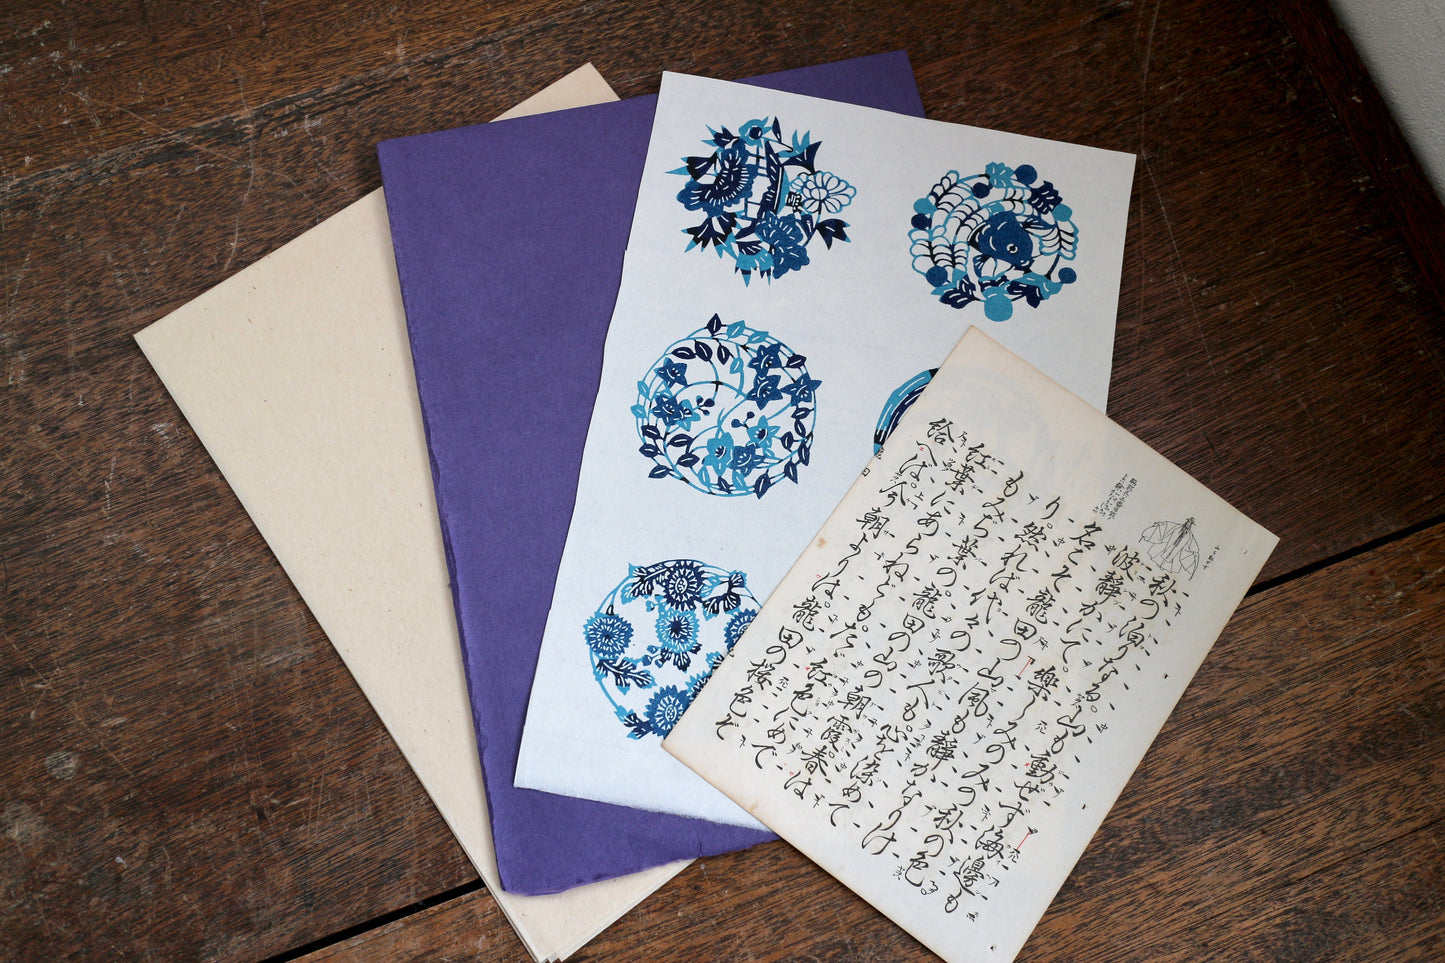 秋の泊りなる。山も動ぜず海邊も
波靜かにて、樂しみのみの秋の色。
名こそ龍田の山風も靜かなりけ
り。然れば代々の歌人も。心を染めて
もみぢ葉の。龍田の山の朝霞。春は
紅葉にあらねども。たゞ紅色にめで
給へば。今朝よりは。龍田の桜色ぞ